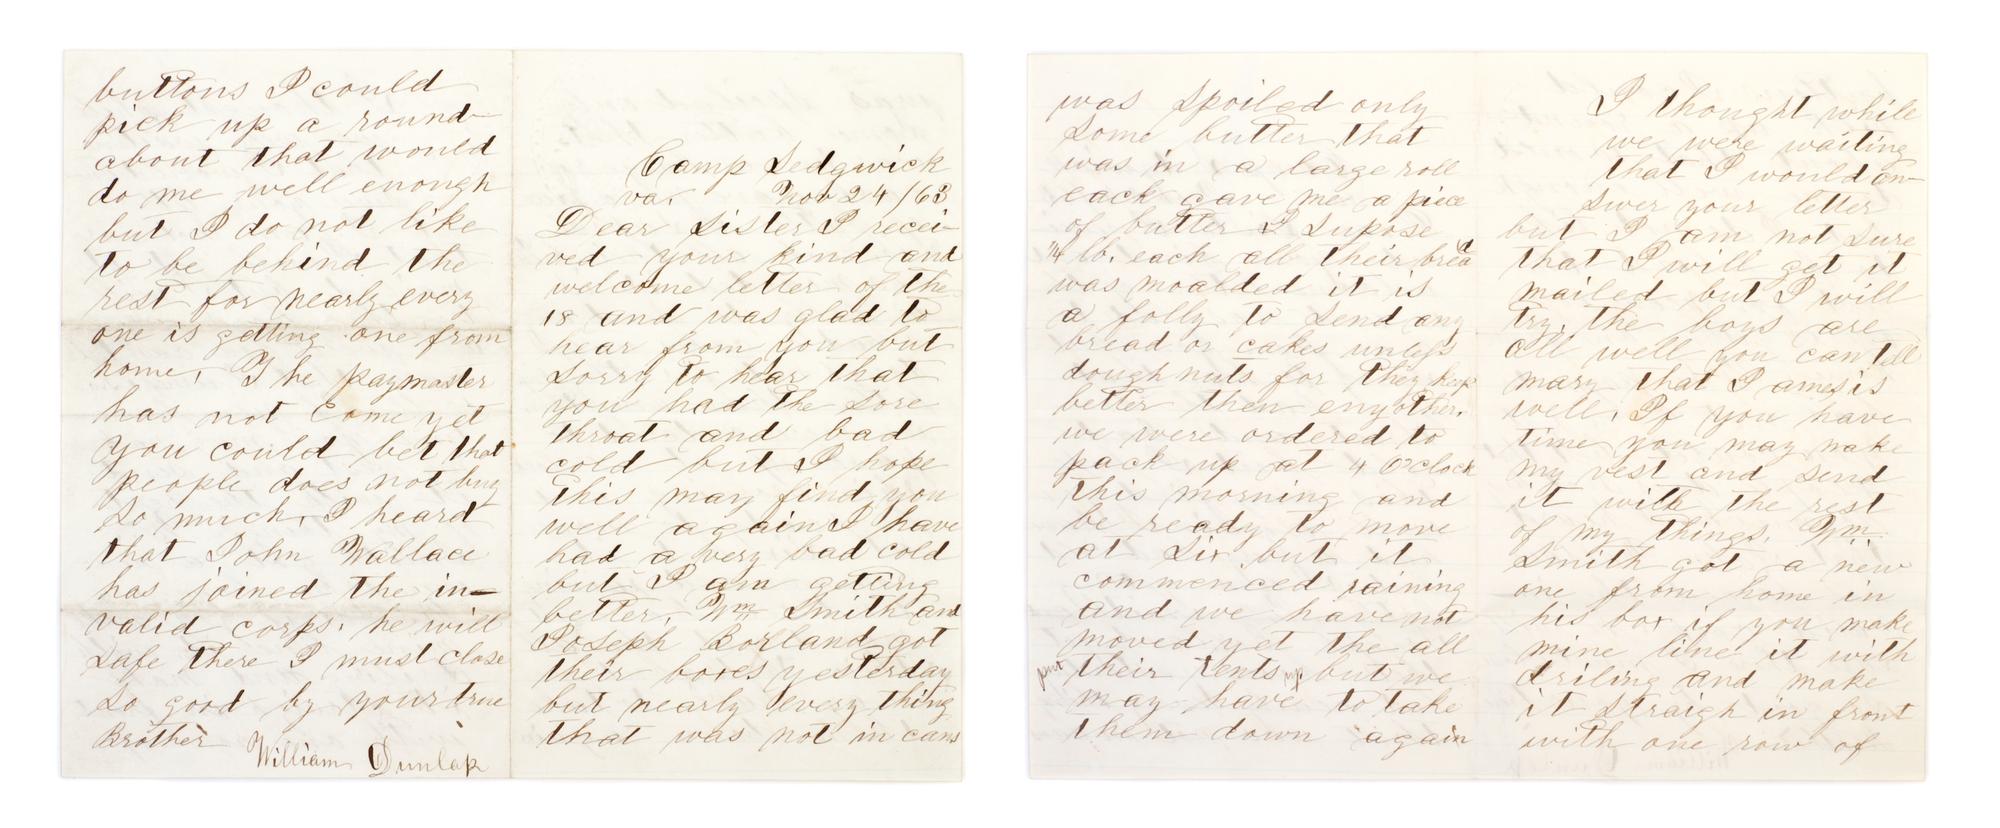 Camp Sedgwick
va. Nov 24 /63
Dear Sister I recei-
ved your kind and
welcome letter of the
18 and was glad to
hear from you but
Sorry to hear that
you had the sore
throat and bad
cold but I hope
this may find you
well again I have
had a very bad cold
but I am getting
better, Wm Smith and
Joseph Borland got
their boxes yesterday
but nearly every thing
that was not in cans
was spoiled only
Some butter that
was in a large roll
each gave me a piece
of butter I supose
1/4 lb. each all their bread
was moalded it is
a folly to send any
bread or cakes unless
dough nuts for they keep
better then eny other.
we were ordered to
pack up at 4 O'clock
this morning and
be ready to move
at Six but it
commenced raining
and we have not
moved yet the all
put their tents up but we
may have to take
them down again
I thought while
we were waiting
that I would an-
swer your letter
but I am not sure
that I will get it
mailed but I will
try. the boys are
all well you can tell
mary that Jameis is
well. If you have
time you may make
my vest and send
it with the rest
of my things. Wm.
Smith got a new
one from home in
his box if you make
mine line it with
driling and make
it straigh in front
with one row of
buttons I could
pick up a round-
about that would
do me well enough
but I do not like
to be behind the
rest for nearly every
one is getting one from
home, The paymaster
has not come yet
you could bet that
people does not buy
so much, I heard
that John Wallace
has joined the in-
valid corps. he will
safe there I must close
so good by your true
Brother
William Dunlap